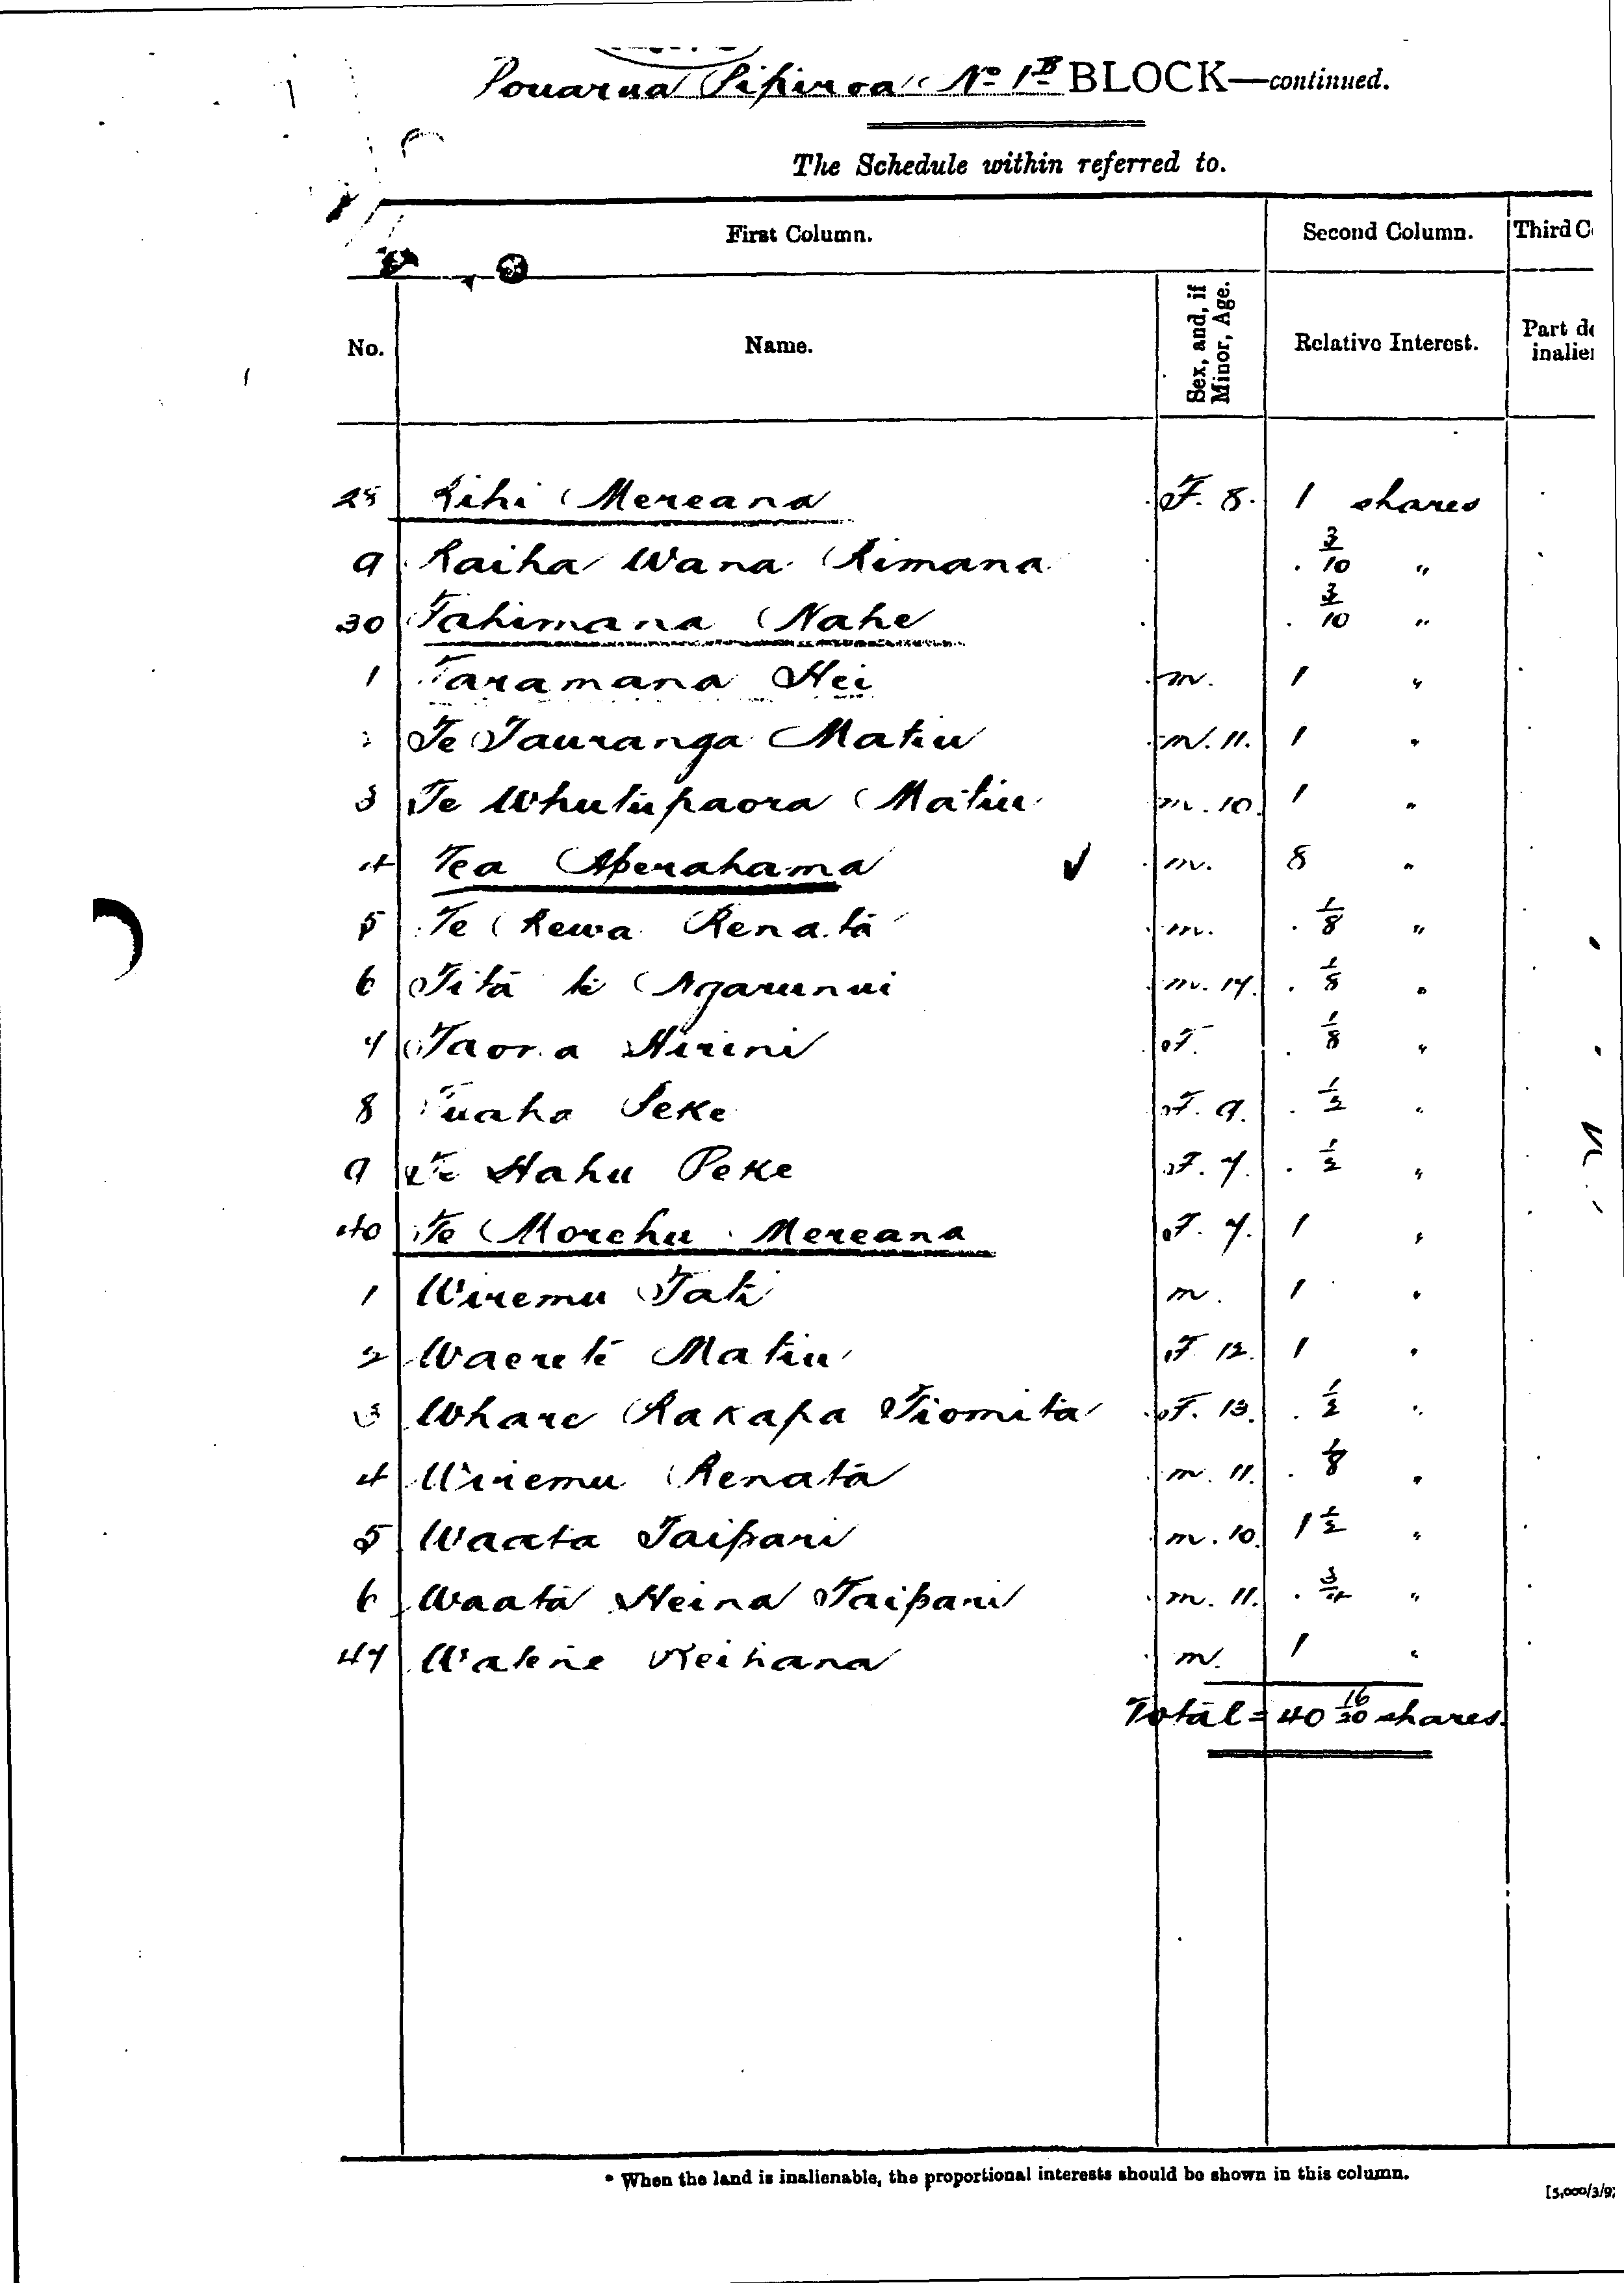 Pouarua Pipiroa No 1B BLOCK—continued.
The Schedule within referred to.
First Column. Second Column. Third C
No. Name. Sex, and, if Minor, Age. Relative Interest. Part de inalie
28 Rihi Mereana F. 8. 1 shares
9 Raiha Wana Rimana 3/10 "
30 Tahimana Nahe 3/10 "
1 Taramana Hei m. 1 "
2 Te Tauranga Matiu m. 11. 1 "
3 Te Whutupaora Matiu m. 10. 1 "
4 Tea Aperahama ✓ m. 8 "
5 Te Rewa Renata m. 1/8 "
6 Tita te Ngarunui m. 14. 1/8 "
7 Taora Hirini F. 1/8 "
8 Tuaho Peke F. 9. 1/2 "
9 Te Hahu Peke F. 7. 1/2 "
40 Te Morehu Mereana F. 7. 1 "
1 Wiremu Tati m. 1 "
2 Waerete Matiu F. 12. 1 "
3 Whare Rakapa Tiomita F. 13. 1/2 "
4 Wiremu Renata m. 11. 1/8 "
5 Waata Taipari m. 10. 1 1/2 "
6 Waata Heina Taipari m. 11. 3/4 "
47 Watene Keihana m. 1 "
Total = 40 16/20 shares.
* When the land is inalienable, the proportional interests should be shown in this column.
[5,000/3/9